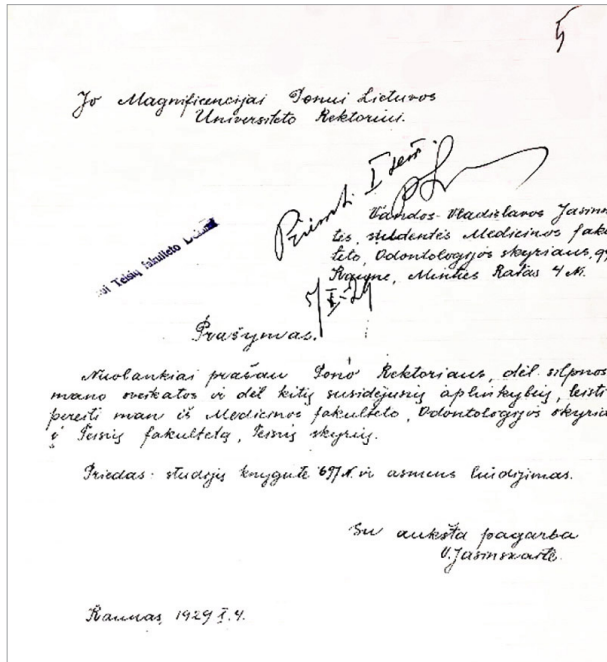 5
Jo Magnificencijai Ponui Lietuvos
Universiteto Rektoriui.
Priimti I sem.
Vandos-Vladislavos Jasins
tės, studentės Medicinos fakul
teto, Odontologijos skyriaus, gy
Kaune, Minties Ratas 4 N.
Teisių fakulteto
5/I-29
Prašymas.
Nuolankiai prašau Pono Rektoriaus, dėl silpnos
mano sveikatos ir dėl kitų susidėjusių aplinkybių, leisti
pereiti man iš Medicinos fakulteto, Odontologijos skyria
į Teisių fakultetą, Teisių skyrių.
Priedas: studijų knygutė 697 N. ir asmens liudijimas.
Su aukšta pagarba
V. Jasinskaitė.
Kaunas, 1929 I. 4.